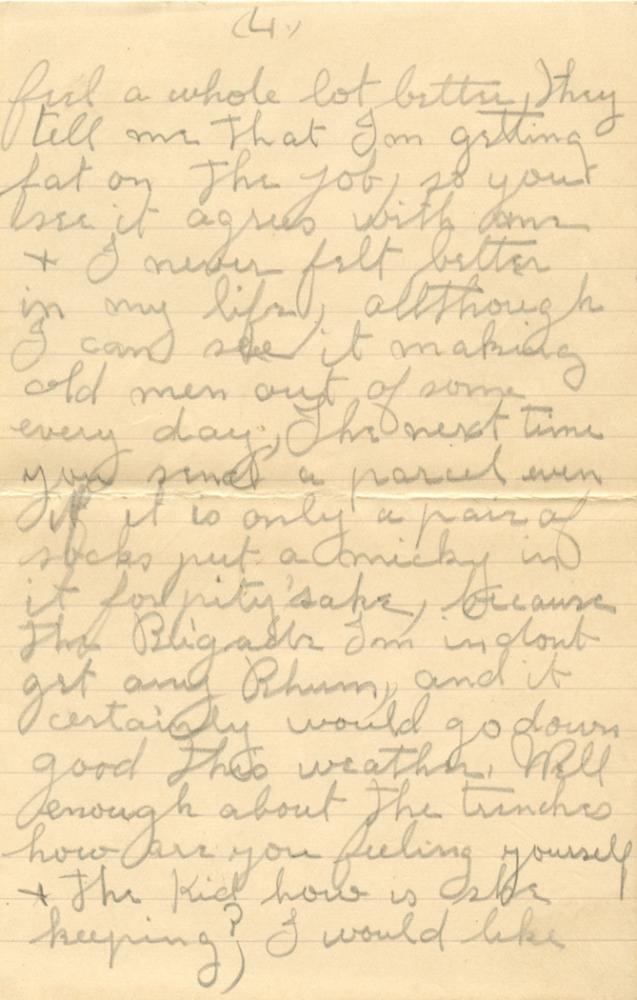 (4.)
feel a whole lot better, They
tell me that I'm getting
fat on the job, so you
see it agrees with me
+ I never felt better
in my life, allthough
I can see it making
old men out of some
every day, The next time
you send a parcel even
if it is only a pair of
socks put a micky in
it for pity'sake, because
the Brigade I'm in dont
get any Rhum, and it
certainly would go down
good this weather. Well
enough about the trenches
how are you feeling yourself
+ the Kid how is she
keeping? I would like